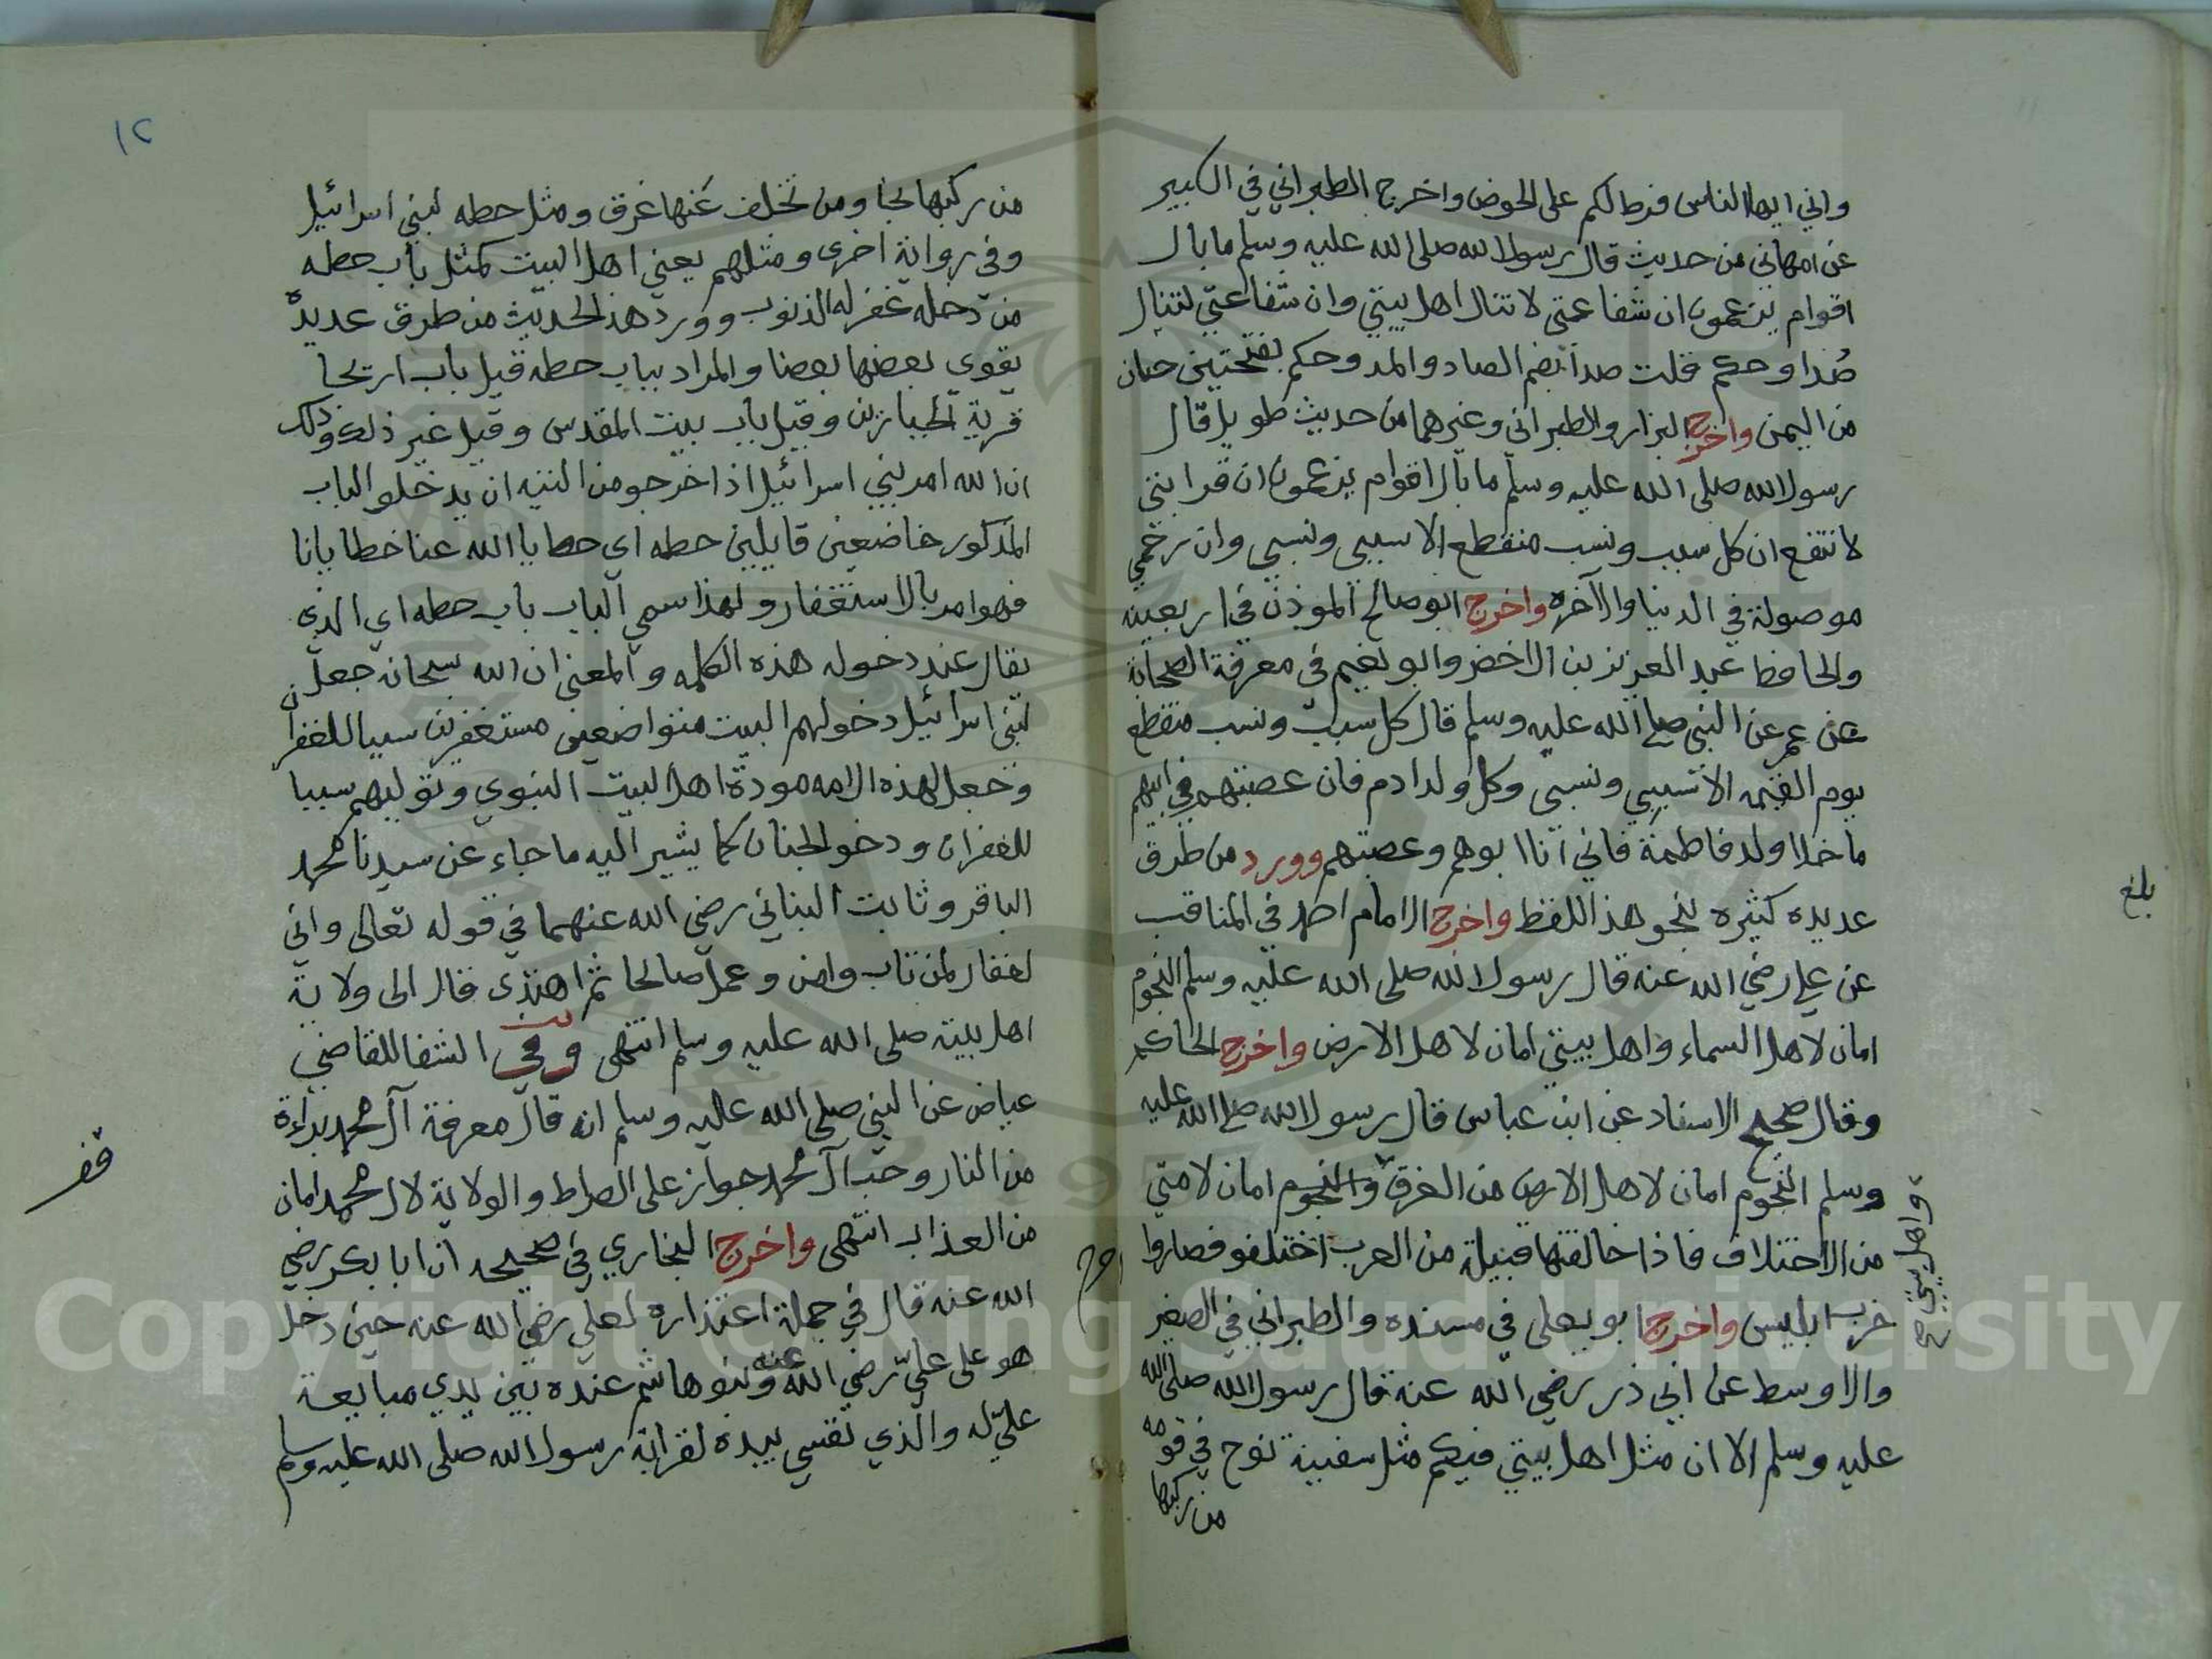 واني ايها الناس فرط لكم على الحوض واخرج الطبراني في الكبير
عن امهاني من حديث قال رسول الله صلى الله عليه وسلم ما بال
اقوام يزعمون ان شفاعتي لا تنال اهل بيتي وان شفاعتي لتنال
صُدا وحكم قلت صدا بضم الصاد والمد وحكم بفتحتين حيان
من اليمن واخرج البزار والطبراني وغيرهما من حديث طويل قال
رسول الله صلى الله عليه وسلم ما بال اقوام يزعمون ان قرابتي
لا تنفع ان كل سبب ونسب منقطع الا سببي ونسبي وان رحمي
موصولة في الدنيا والآخره واخرج ابو صالح الموذن في اربعينه
والحافظ عبد العزيز بن الاخضر وابو نعيم في معرفة الصحابة
عن عمر عن النبي صلى الله عليه وسلم قال كل سبب ونسب منقطع
يوم القيمه الا سببي ونسبي وكل ولد ادم فان عصبتهم في ابيهم
ما خلا ولد فاطمة فاني انا ابوهم وعصبتهم وورد من طرق
عديده كثيره بنحو هذا اللفظ واخرج الامام احمد في المناقب
عن علي رضي الله عنه قال رسول الله صلى الله عليه وسلم النجوم
امان لاهل السماء واهل بيتي امان لاهل الارض واخرج الحاكم
وقال صحيح الاسناد عن ابن عباس قال رسول الله صلى الله عليه
وسلم النجوم امان لاهل الارض من الغرق والنجوم امان لامتي
واهل بيتي صح
من الاختلاف فاذا خالفتها قبيلة من العرب اختلفو فصاروا
حزب ابليس واخرج ابو يعلى في مسنده والطبراني في الصغير
والاوسط عن ابي ذر رضي الله عنه قال رسول الله صلى الله
عليه وسلم الا ان مثل اهل بيتي فيكم مثل سفينة نوح في قومه
من ركبها
بلغ
١٢
من ركبها نجا ومن تخلف عنها غرق ومثل حطه لبني اسرائيل
وفي رواية اخرى ومثلهم يعني اهل البيت كمثل باب حطه
من دخله غفر له الذنوب وورد هذا الحديث من طرق عديدة
يقوي بعضها بعضا والمراد بباب حطه قيل باب اريحا
قرية الجبارين وقيل باب بيت المقدس وقيل غير ذلك وذلك
ان الله امر بني اسرائيل اذا خرجو من التيه ان يدخلو الباب
المذكور خاضعين قايلين حطه اي حط يا الله عنا خطايانا
فهو امر بالاستغفار ولهذا سمي الباب باب حطه اي الذي
يقال عند دخوله هذه الكلمه والمعنى ان الله سبحانه جعل
لبني اسرائيل دخولهم البيت متواضعين مستغفرين سببا للغفران
وجعل لهذه الامه مودة اهل البيت النبوي وتوليهم سببا
للغفران ودخول الجنان كما يشير اليه ما جاء عن سيدنا محمد
الباقر وثابت البناني رضي الله عنهما في قوله تعالى واني
لغفار لمن تاب وامن وعمل صالحا ثم اهتدى قال الى ولاية
اهل بيته صلى الله عليه وسلم انتهى وفي الشفا للقاضي
عياض عن النبي صلى الله عليه وسلم انه قال معرفة آل محمد براءة
من النار وحب آل محمد جواز على الصراط والولاية لال محمد امان
من العذاب انتهى واخرج البخاري في صحيحه ان ابا بكر رضي
الله عنه قال في جملة اعتذاره لعلي رضي الله عنه حين دخل
هو على علي رضي الله عنه وبنو هاشم عنده بين يدي مبايعة
علي له والذي نفسي بيده لقرابة رسول الله صلى الله عليه وسلم
قف
Copyright © King Saud University